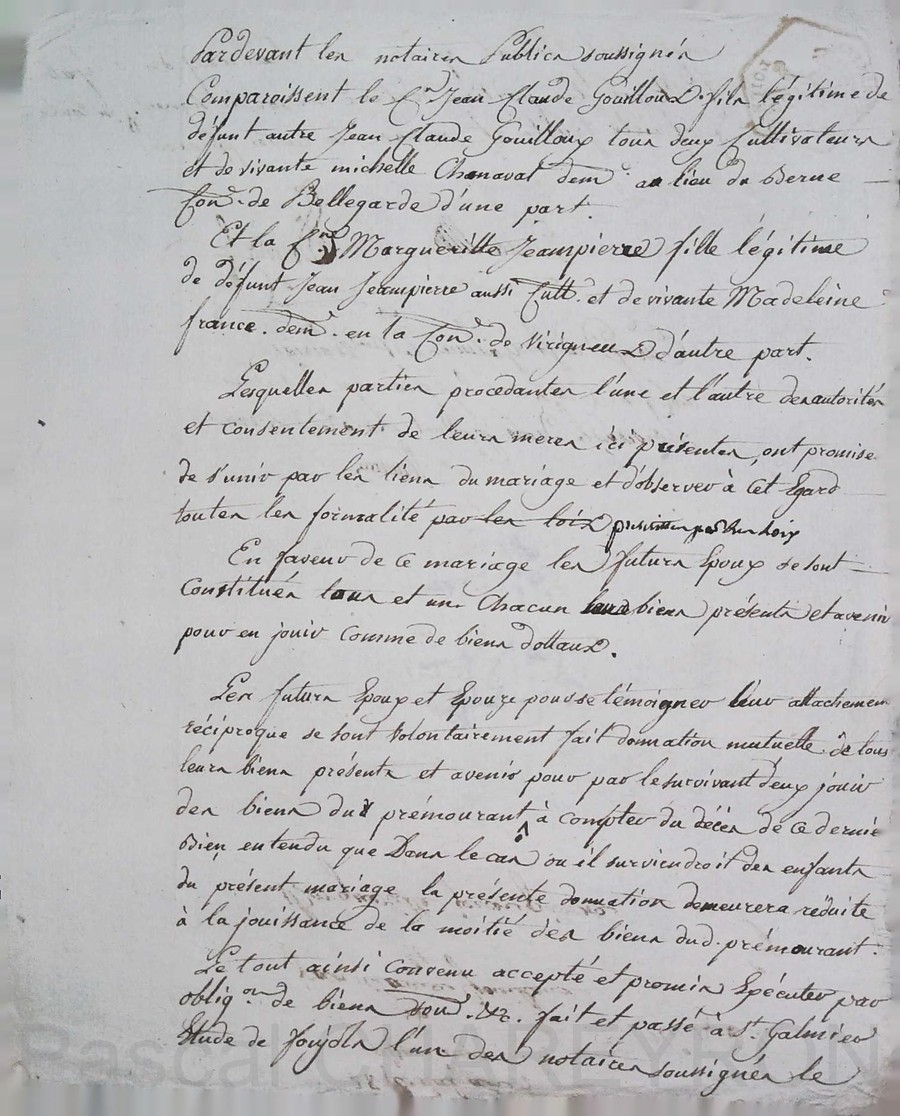 Pardevant les notaires Publics soussignés
Comparoissent le Cen Jean Claude Gouilloux fils légitime de
défunt autre Jean Claude Gouilloux tous deux Cultivateurs
et de vivante michelle Chanavat demt au lieu du Berne
Conne de Bellegarde d'une part.
Et la Cne Margueritte Jeampierre fille légitime
de défunt Jean Jeampierre aussi Cultr et de vivante Madeleine
france. demt en la Conne de Virigneux d'autre part.
Lesquelles parties procedantes l'une et l'autre des autorités
et consentement de leurs meres ici présentes, ont promise
de s'unir par les liens du mariage et d'observer à cet Egard
toutes les formalité par les loix prescrittes par les loix
En faveur de ce mariage les futurs Epoux se sont
Constitués tous et un Chacun leurs biens présents et avenir
pour en jouir comme de biens dottaux.
Les futurs Epoux et Epouze pour se témoigner leur attachemen
réciproque se sont volontairement fait donnation mutuelle de tous
leurs biens présents et avenir pour par le survivant d'eux jouir
des biens du prémourant à compter du décès de ce dernie
Bien entendu que Dans le cas où il surviendroit des enfants
du présent mariage la présente donnation demeurera réduite
à la jouissance de la moitié des biens dud. prémourant.
Le tout ainsi convenu accepté et promis Exécuter par
obligon de biens &c. fait et passé à St. Galmier
Etude de Joujols l'un des notaires soussignés le
Pascal CHAREYRON